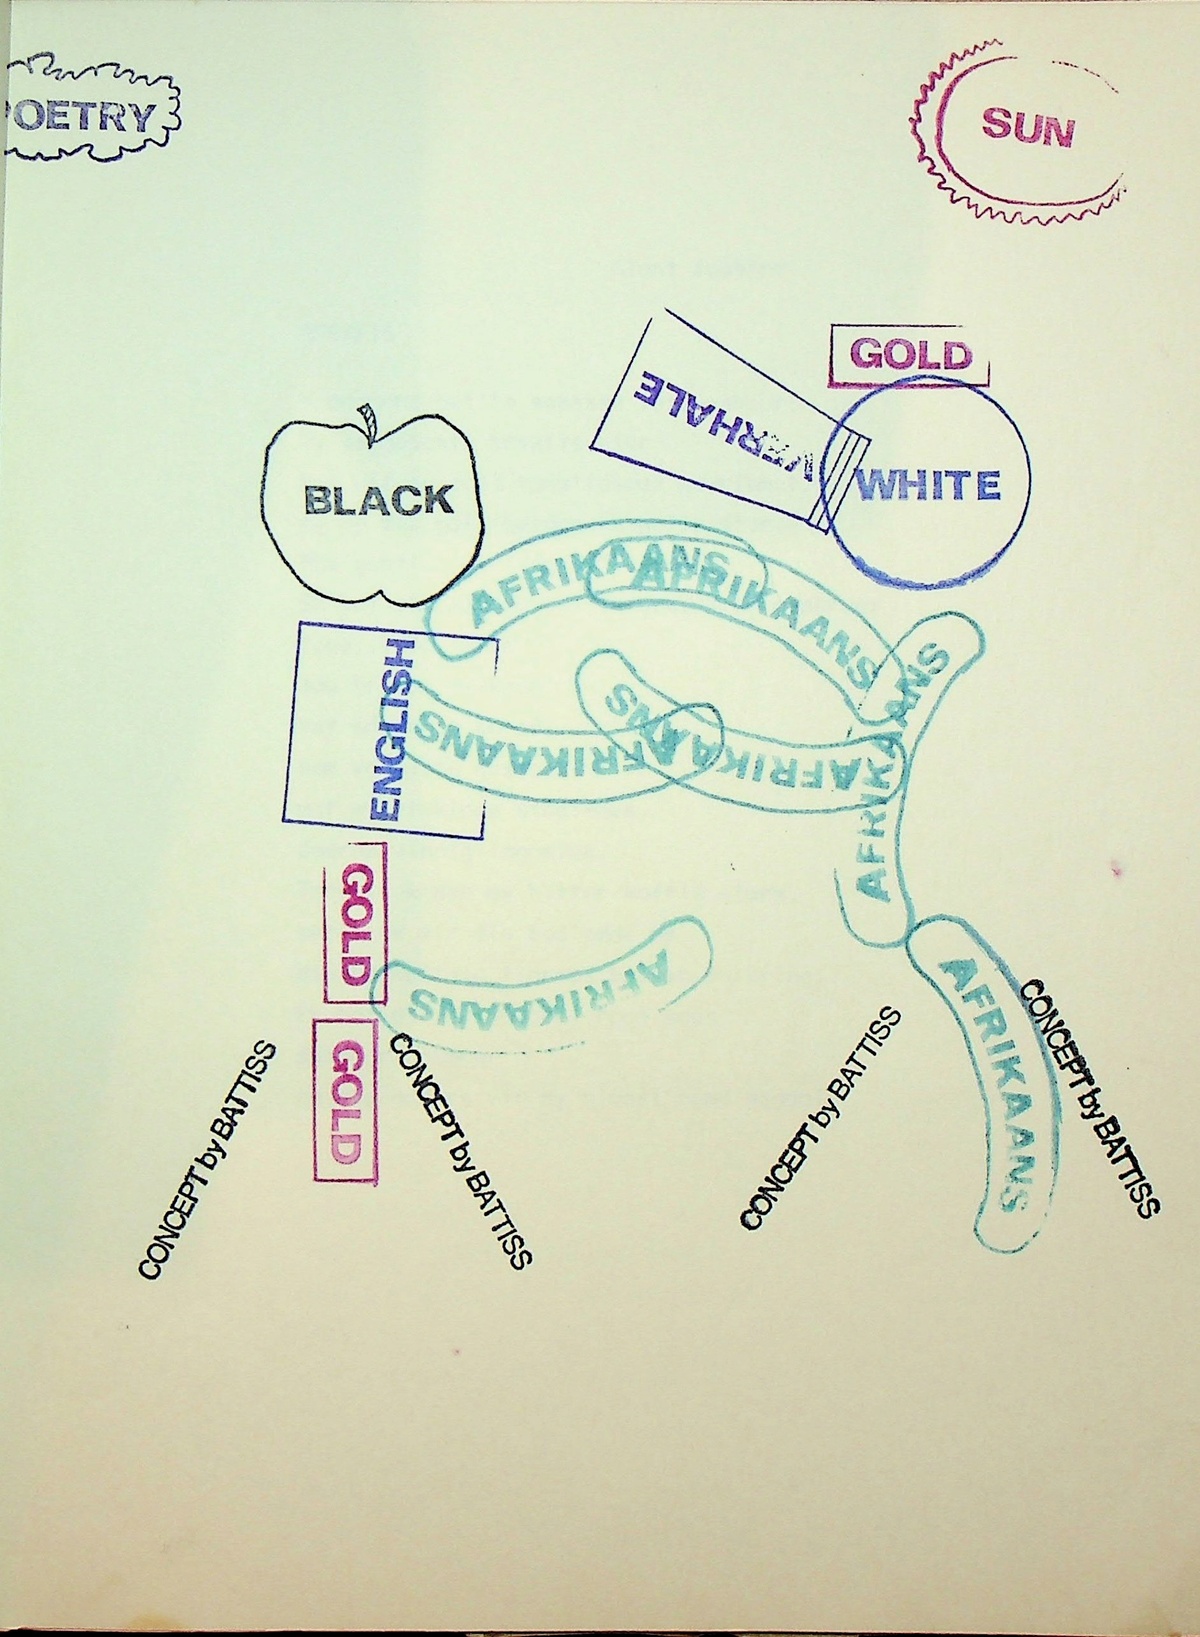 POETRY
SUN
GOLD
VERHALE
WHITE
BLACK
AFRIKAANS
AFRIKAANS
AFRIKAANS
ENGLISH
AFRIKAANS
AFRIKAANS
GOLD
AFRIKAANS
AFRIKAANS
GOLD
CONCEPT by BATTISS
CONCEPT by BATTISS
CONCEPT by BATTISS
CONCEPT by BATTISS